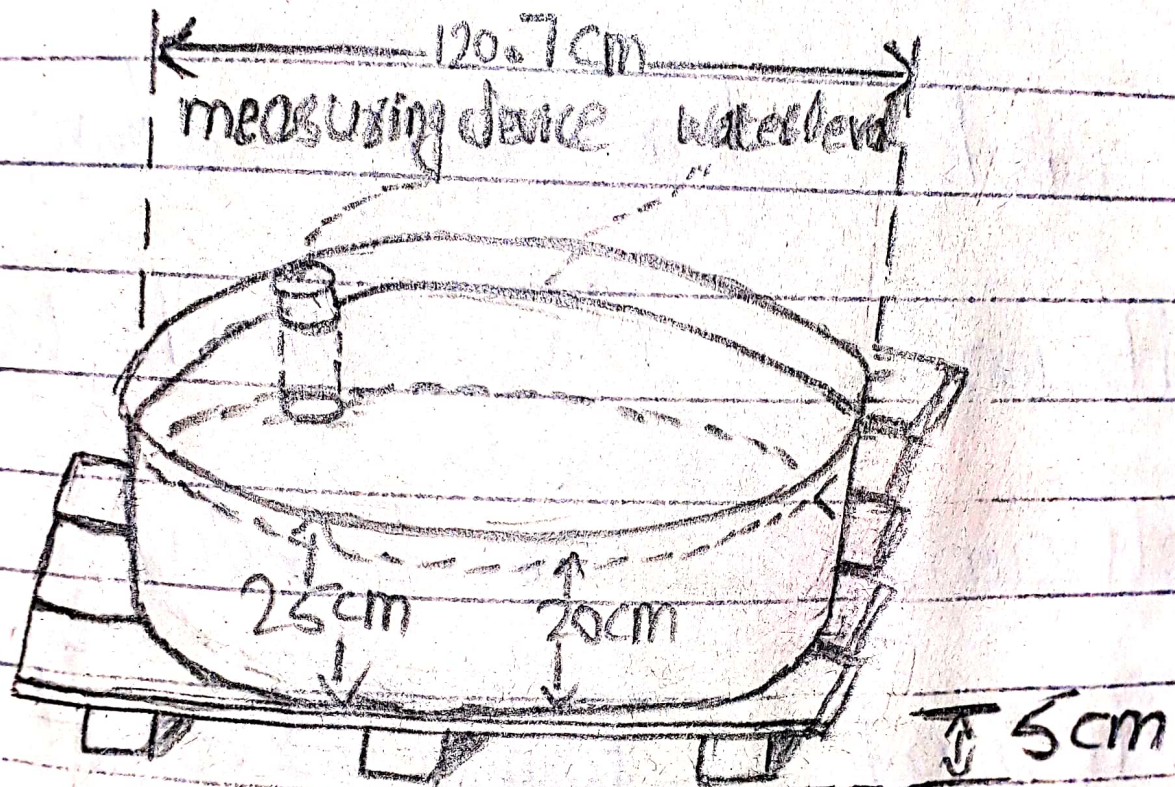 120.7cm
measuring device water level
25cm 20cm
5cm